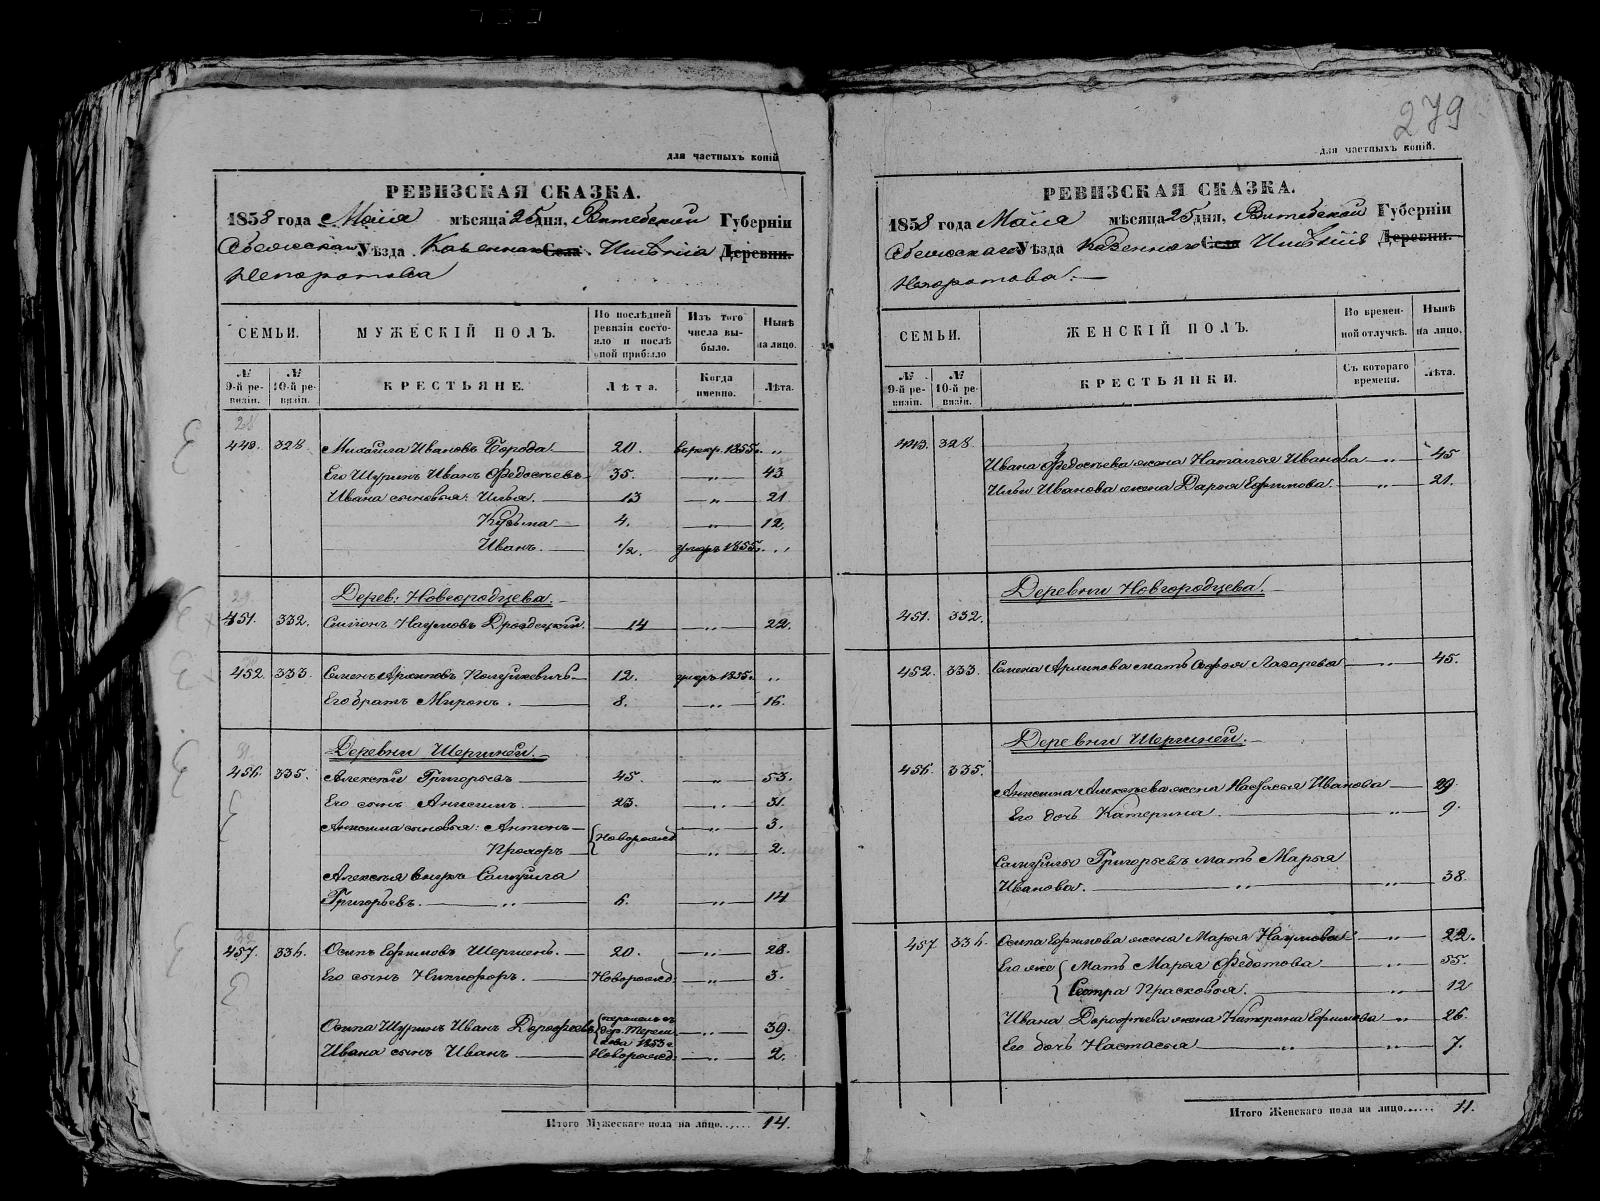 279
для частныхъ копій
РЕВИЗСКАЯ СКАЗКА.
1858 года Маія мѣсяца 25 дня, Витебской Губерніи
Себежскаго Уѣзда Казеннаго Села Имѣнія Деревни.
Непоротова
СЕМЬИ. МУЖЕСКІЙ ПОЛЪ. По послѣдней ревизіи состояло и послѣ оной прибыло Изъ того числа выбыло. Нынѣ на лицо.
№ 9-й ревизіи. № 10-й ревизіи. КРЕСТЬЯНЕ. Лѣта. Когда именно. Лѣта.
28
443. 328. Михайла Ивановъ Борода 20. 1855. „
Его Шуринъ Иванъ Федосѣевъ 35. „ 43
Ивана сыновья: Илья 13 „ 21
Кузьма 4. „ 12.
Иванъ. 1/2. умеръ 1855. „
29.
Дерев: Новгородцева.
451. 332. Симонъ Наумовъ Дроздецкій. 14 „ 22.
452. 333. Семенъ Архиповъ 12. умеръ 1855. „
Его братъ Миронъ. 8. „ 16.
31.
Деревни Шершней.
456. 335. Алексѣй Григорьевъ 45. „ 53.
Его сынъ Анисимъ. 23. „ 31.
Анисима сыновья: Антонъ Новорожд „ 3.
Прохоръ „ 2.
Алексѣя внукъ Самуила
Григорьевъ. „ 6. „ 14
32
457. 336. Осипъ Ефимовъ Шершень. 20. „ 28.
Его сынъ Никифоръ. Новорожд: „ 3.
Осипа Шуринъ Иванъ Дорофѣевъ дер. 1853 г „ 39.
Ивана сынъ Иванъ Новорожд: „ 2.
Итого Мужескаго пола на лицо...... 14.
для частныхъ копій.
РЕВИЗСКАЯ СКАЗКА.
1858 года Маія мѣсяца 25 дня, Витебской Губерніи
Себежскаго Уѣзда Казеннаго Села Имѣнія Деревни.
Непоротова.
СЕМЬИ. ЖЕНСКІЙ ПОЛЪ. Во временной отлучкѣ. Нынѣ на лицо.
№ 9-й ревизіи. № 10-й ревизіи. КРЕСТЬЯНКИ. Съ котораго времени. Лѣта.
443. 328.
Ивана Федосѣева жена Наталья Иванова „ 45
Ильи Иванова жена Дарья Ефимова. „ 21.
Деревни Новгородцева.
451. 332.
452. 333. Семена Архипова мать Софья Лазарева „ 45.
Деревни Шершней.
456. 335.
Анисима Алексѣева жена Настасья Иванова 29.
Его дочь Катерина. „ 9.
Самуилы Григорьевъ мать Марья
Иванова. „ „ 38.
457. 336. Осипа Ефимова жена Марья Наумова „ 22.
Его же Мать Марья Федотова „ 55.
Сестра Прасковья. „ 12
Ивана Дорофѣева жена Катерина Ефимова „ 26.
Его дочь Настасья „ „ 7.
Итого Женскаго пола на лицо...... 11.